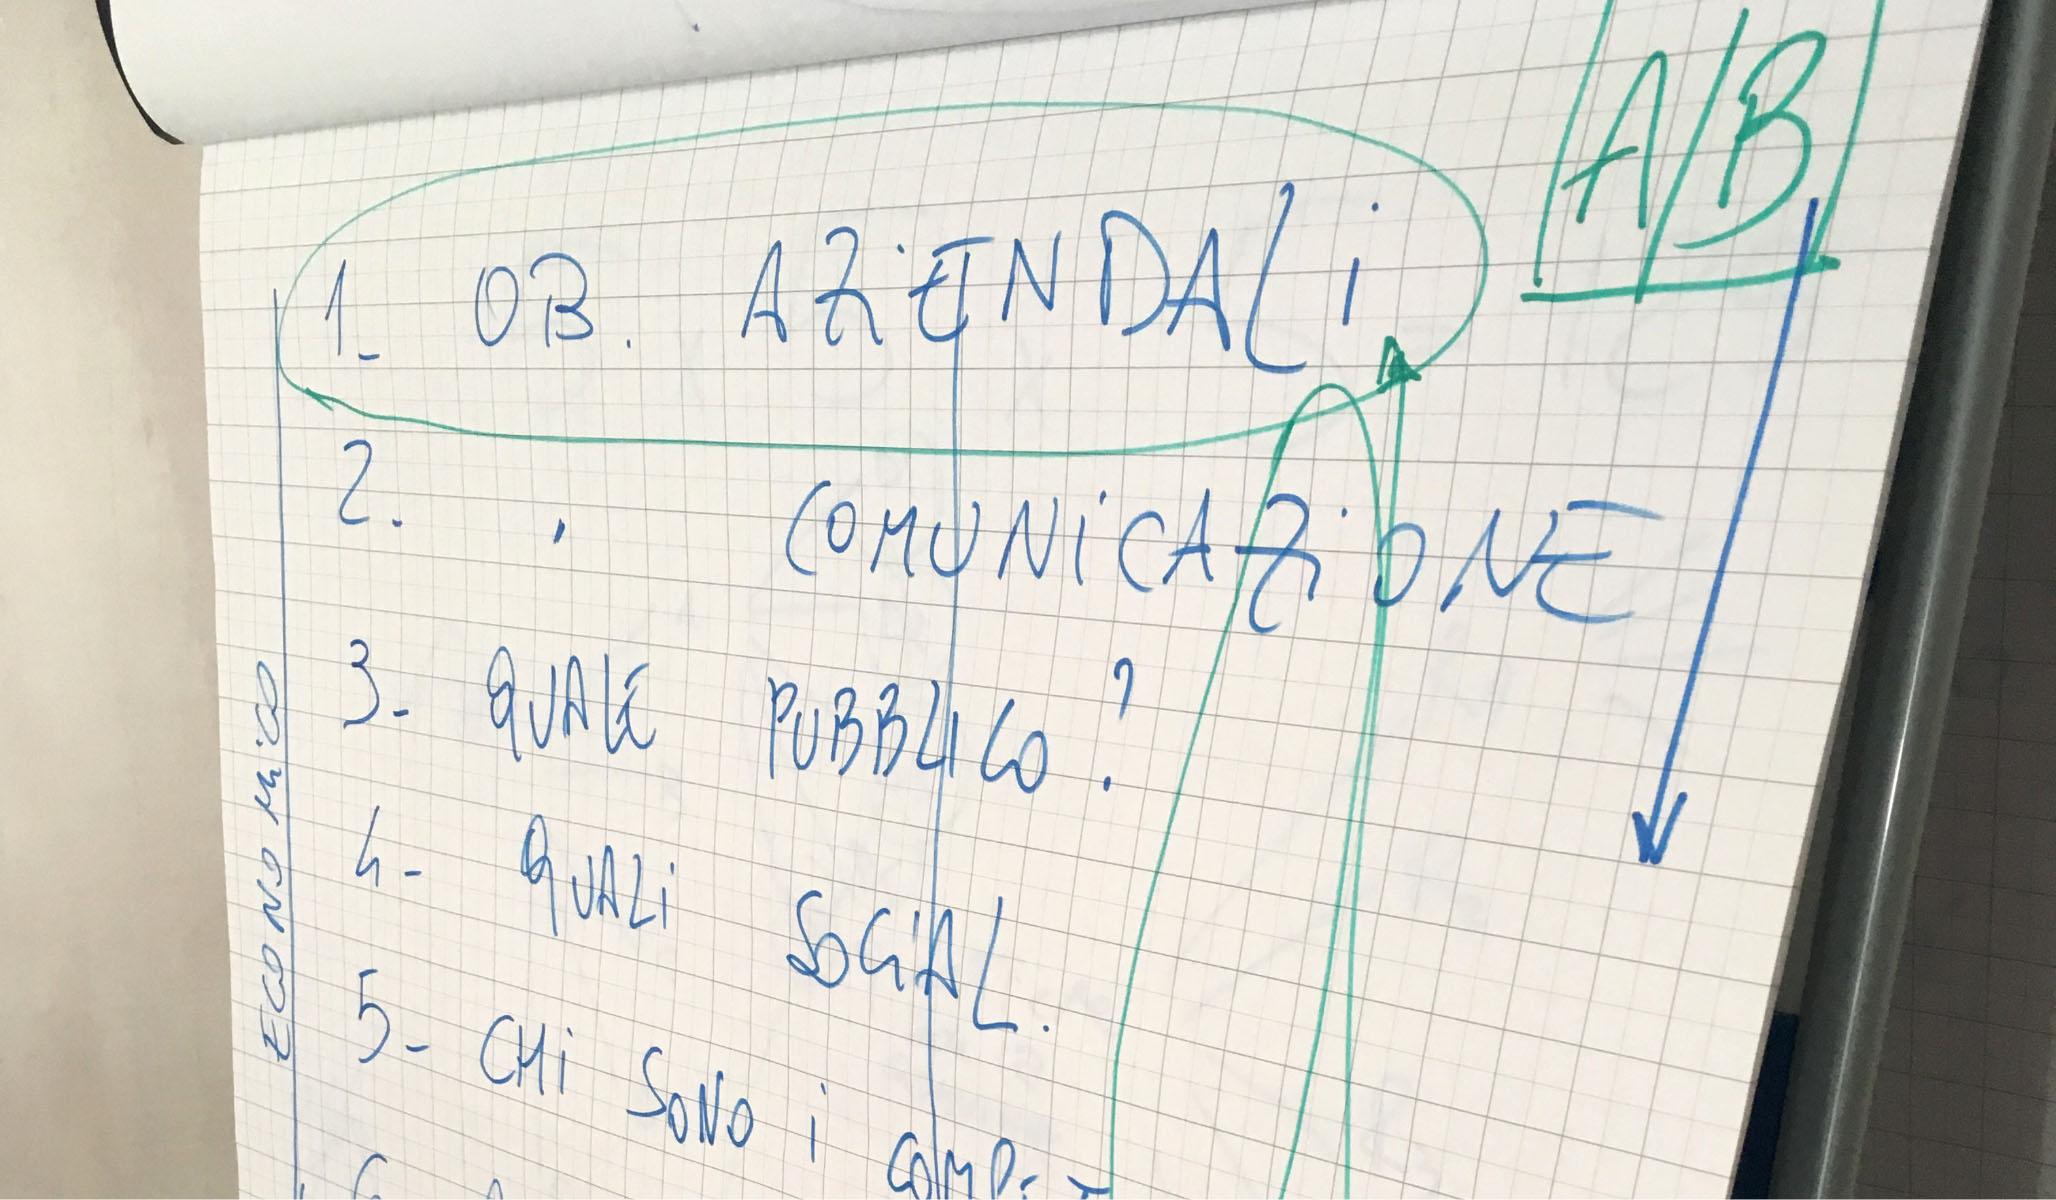 A/B
1_ OB. AZiENDALi
2. , COMUNiCAZiONE
3- QUALE PUBBLICO?
4- QUALi SOCiAL.
5- CHi SONO i
ECONOMiCO